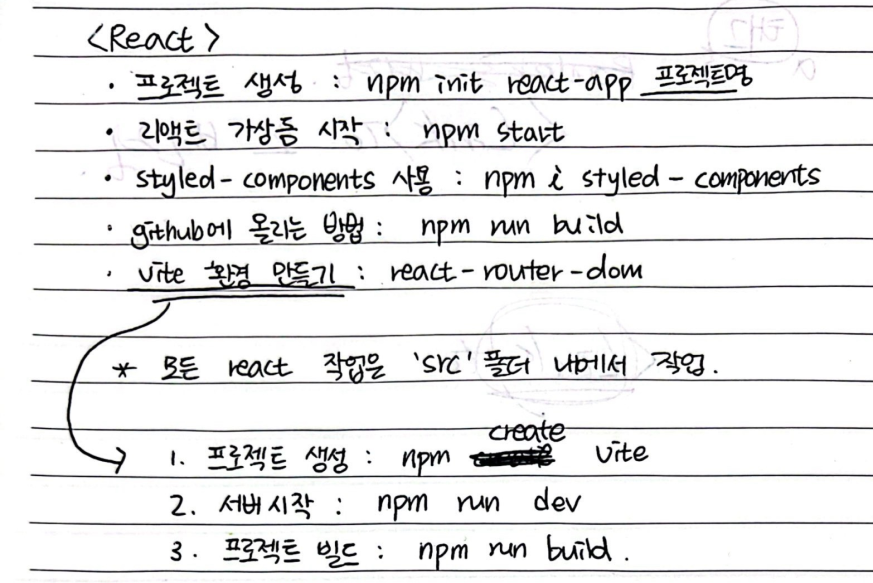 <React>
· 프로젝트 생성 : npm init react-app 프로젝트명
· 리액트 가상돔 시작 : npm start
· styled-components 사용 : npm i styled-components
· github에 올리는 방법 : npm run build
· vite 환경 만들기 : react-router-dom
* 모든 react 작업은 'src' 폴더 내에서 작업.
1. 프로젝트 생성 : npm create vite
2. 서버시작 : npm run dev
3. 프로젝트 빌드 : npm run build.